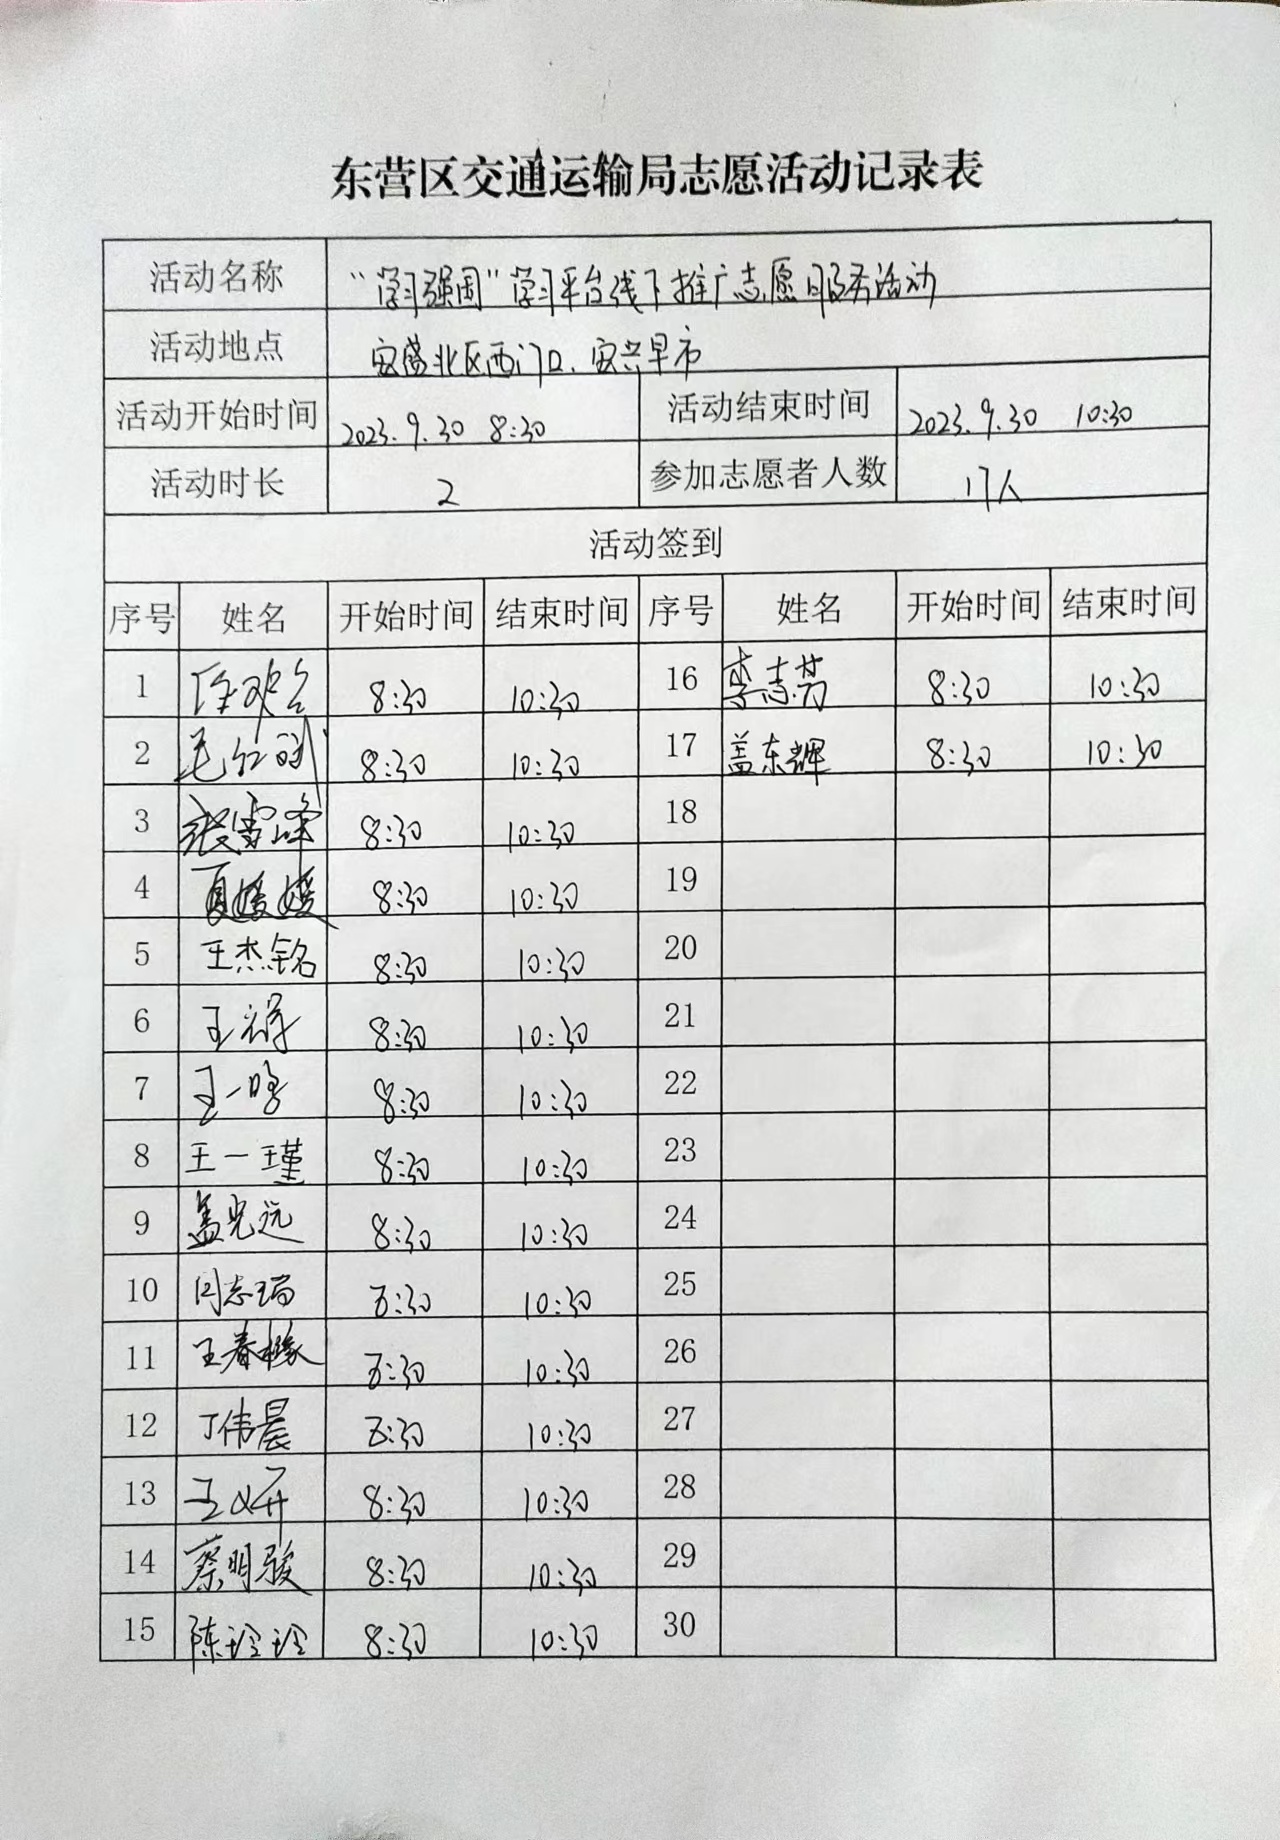 东营区交通运输局志愿活动记录表
活动名称 “学习强国”学习平台线下推广志愿服务活动
活动地点 安盛北区西门口、安兴早市
活动开始时间 2023.9.30 8:30 活动结束时间 2023.9.30 10:30
活动时长 2 参加志愿者人数 17人
活动签到
序号 姓名 开始时间 结束时间 序号 姓名 开始时间 结束时间
1 8:30 10:30 16 李志芳 8:30 10:30
2 8:30 10:30 17 盖东辉 8:30 10:30
3 张雪峰 8:30 10:30 18
4 夏媛媛 8:30 10:30 19
5 王杰铭 8:30 10:30 20
6 王 8:30 10:30 21
7 王一鸣 8:30 10:30 22
8 王一瑾 8:30 10:30 23
9 盖光远 8:30 10:30 24
10 闫志瑞 8:30 10:30 25
11 王春 8:30 10:30 26
12 丁伟晨 8:30 10:30 27
13 王 8:30 10:30 28
14 蔡明骏 8:30 10:30 29
15 陈玲玲 8:30 10:30 30